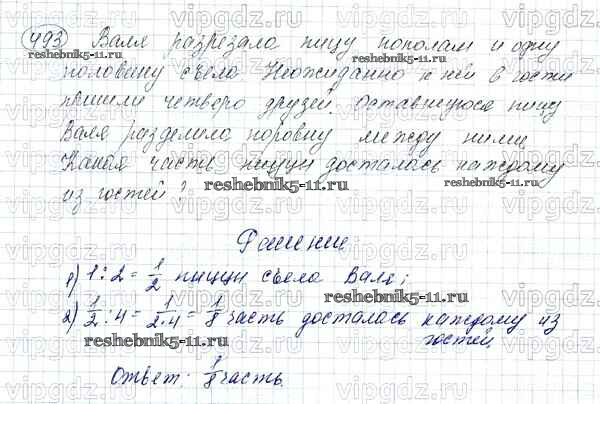 493 Валя разрезала пиццу пополам и одну
половину съела. Неожиданно к ней в гости
пришли четверо друзей. Оставшуюся пиццу
Валя разделила поровну между ними.
Какая часть пиццы досталась каждому
из гостей?
Решение
1) 1:2 = 1/2 пиццы съела Валя;
2) 1/2 : 4 = 1/2·4 = 1/8 часть досталась каждому из
гостей.
Ответ: 1/8 часть.
vipgdz.ru
reshebnik5-11.ru